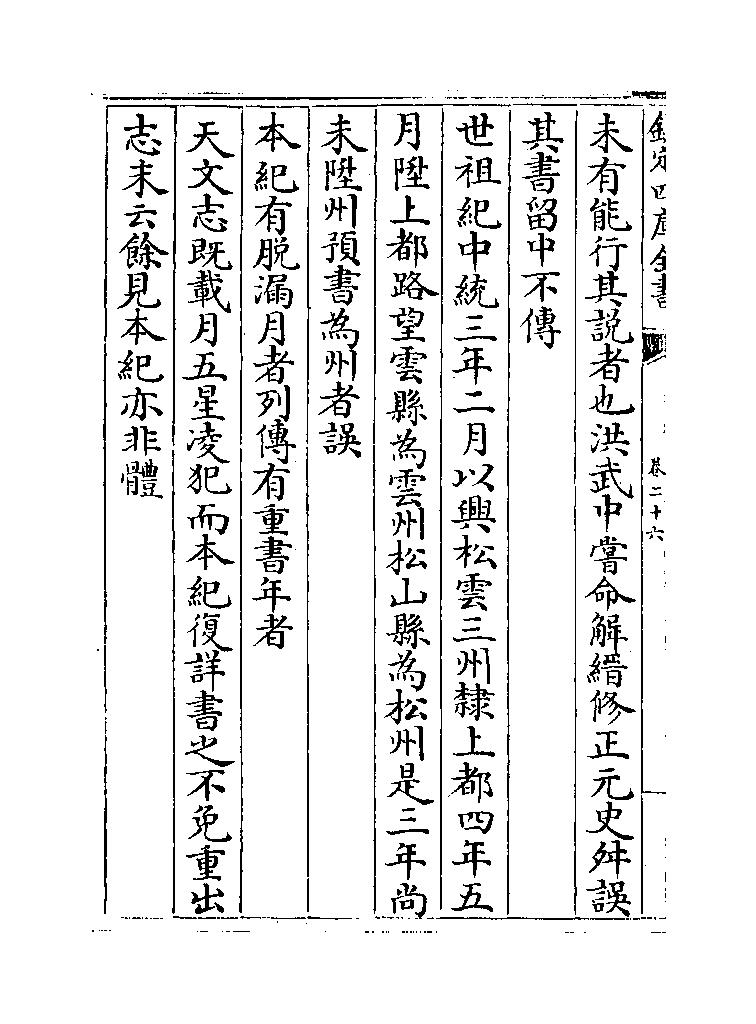 欽定四庫全書
卷二十六
未有能行其説者也洪武中嘗命解縉修正元史舛誤
其書留中不傳
世祖紀中統三年二月以興松雲三州隸上都四年五
月陞上都路望雲縣為雲州松山縣為松州是三年尚
未陞州預書為州者誤
本紀有脱漏月者列傳有重書年者
天文志既載月五星凌犯而本紀復詳書之不免重出
志末云餘見本紀亦非體